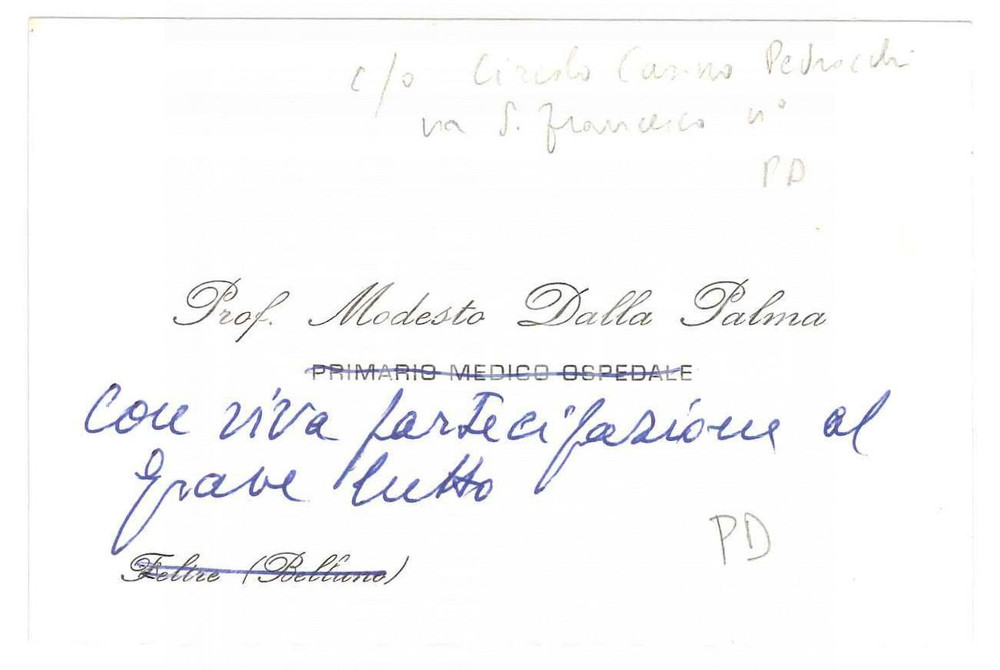 c/o Circolo Casino Pedrocchi
via S. Francesco n°
PD
Prof. Modesto Dalla Palma
PRIMARIO MEDICO OSPEDALE
Con viva partecipazione al
grave lutto
PD
Feltre (Belluno)